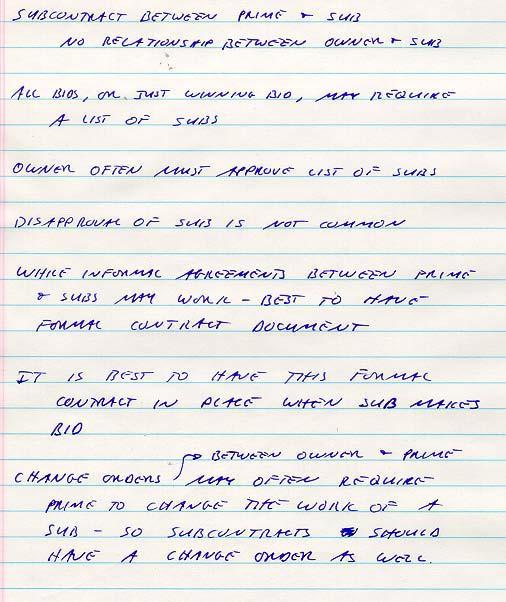 SUBCONTRACT BETWEEN PRIME & SUB
NO RELATIONSHIP BETWEEN OWNER & SUB
ALL BIDS, OR JUST WINNING BID, MAY REQUIRE
A LIST OF SUBS
OWNER OFTEN MUST APPROVE LIST OF SUBS
DISAPPROVAL OF SUB IS NOT COMMON
WHILE INFORMAL AGREEMENTS BETWEEN PRIME
& SUBS MAY WORK - BEST TO HAVE
FORMAL CONTRACT DOCUMENT
IT IS BEST TO HAVE THIS FORMAL
CONTRACT IN PLACE WHEN SUB MAKES
BID
BETWEEN OWNER & PRIME
CHANGE ORDERS MAY OFTEN REQUIRE
PRIME TO CHANGE THE WORK OF A
SUB - SO SUBCONTRACTS SHOULD
HAVE A CHANGE ORDER AS WELL.